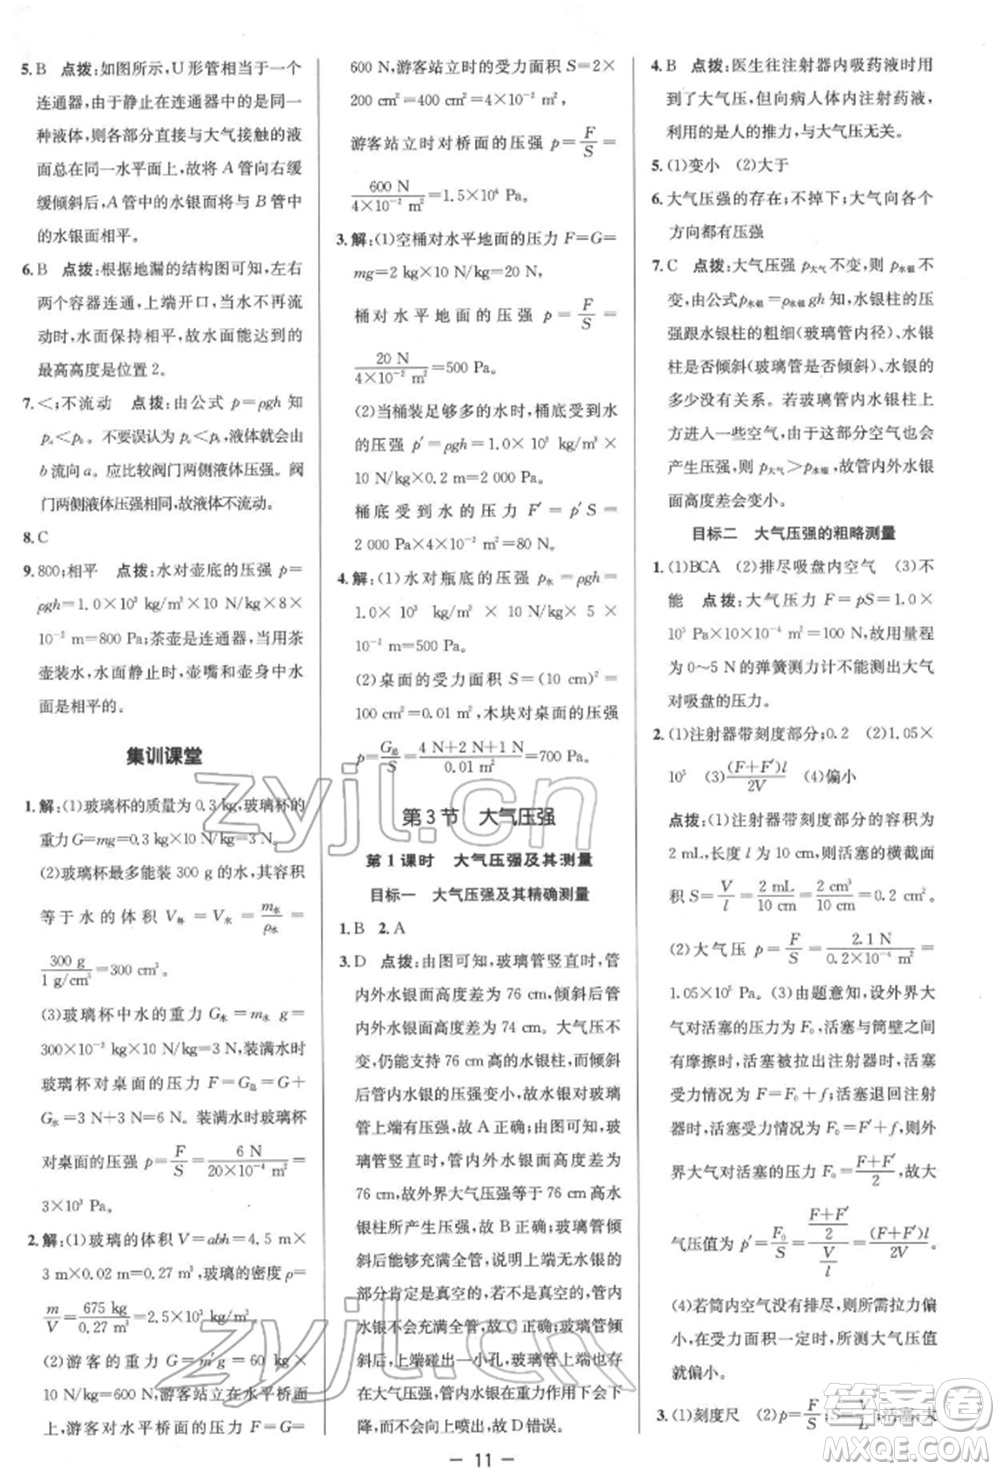 5. B 点拨:如图所示,U 形管是一个
连通器,由于静止在连通器中的同
一种液体,各部分直接与大气接触的液
面总在同一水平面上,故将 A 管向右缓
缓倾斜后,A 管中的水银面将与 B 管中
的水银面相平。
6. B 点拨:根据地漏的结构图可知,左右
两个容器连通,上端开口,当水不流
动时,水面保持相平,故水面能达到的
最高高度是位置 2。
7. <;不流动 点拨:由公式 p=ρgh 知
pₐ<p_b。不要误认为 pₐ<p_b,液体就由
b 流向 a。应比较阀门两侧液体压强。阀
门两侧液体压强相同,故液体不流动。
8. C
9. 800;相平 点拨:水对壶底的压强 p=
ρgh=1.0×10³ kg/m³×10 N/kg×8×
10⁻² m=800 Pa;茶壶是连通器,当用茶
壶装水,水面静止时,壶嘴和壶身中水
面是相平的。
集训课堂
1. 解:(1)玻璃杯的质量为 0.3 kg,玻璃杯的
重力 G=mg=0.3 kg×10 N/kg=3 N。
(2)玻璃杯中最多能装 300 g 的水,其体积
等于水的体积 V杯=V水=m水/ρ水=
300 g/1 g/cm³=300 cm³。
(3)玻璃杯中水的重力 G水=m水 g=
300×10⁻³ kg×10 N/kg=3 N;装满水时
玻璃杯对桌面的压力 F=G总=G+
G水=3 N+3 N=6 N。装满水时玻璃杯
对桌面的压强 p=F/S=6 N/20×10⁻⁴ m²=
3×10³ Pa。
2. 解:(1)玻璃的体积 V=abh=4.5 m×
3 m×0.02 m=0.27 m³,玻璃的密度 ρ=
m/V=675 kg/0.27 m³=2.5×10³ kg/m³。
(2)游客的重力 G=m′g=60 kg×
10 N/kg=600 N,游客站立在水平桥面
时对水平桥面的压力 F=G=
600 N,游客站立时的受力面积 S=2×
200 cm²=400 cm²=4×10⁻² m²,
游客站立时对桥面的压强 p=F/S=
600 N/4×10⁻² m²=1.5×10⁴ Pa。
3. 解:(1)空桶对水平地面的压力 F=G=
mg=2 kg×10 N/kg=20 N,
桶对水平地面的压强 p=F/S=
20 N/4×10⁻² m²=500 Pa。
(2)当桶装足够多的水时,桶底受到水
的压强 p′=ρgh=1.0×10³ kg/m³×
10 N/kg×0.2 m=2 000 Pa,
桶底受到水的压力 F′=p′S=
2 000 Pa×4×10⁻² m²=80 N。
4. 解:(1)水对瓶底的压强 p水=ρ水gh=
1.0×10³ kg/m³×10 N/kg×5×
10⁻² m=500 Pa。
(2)桌面的受力面积 S=(10 cm)²=
100 cm²=0.01 m²,木块对桌面的压强
p=G总/S=4 N+2 N+1 N/0.01 m²=700 Pa。
第 3 节 大气压强
第 1 课时 大气压强及其测量
目标一 大气压强及其精确测量
1. B 2. A
3. D 点拨:由图可知,玻璃管竖直时,管
内外水银面高度差为 76 cm,倾斜后管
内外水银面高度差为 74 cm。大气压不
变,仍能支持 76 cm 高的水银柱,而倾斜
后高度变小,说明此时水银对玻璃
管上端有压强,故 A 正确;由图可知,玻
璃管竖直时,管内外水银面高度差为
76 cm,故此时大气压强等于 76 cm 高水
银柱所产生压强,故 B 正确;若是真空,倾
斜后能够充满全管,故由倾斜后的现
象能说明竖直时是真空,由此可知,倾斜
前肯定是真空,若不是真空,管
内水银不可能充满全管,故 C 正确;
倾斜后,上端碰出一小孔,玻璃管内外与大
气相通,管内水银在重力作用下会下降,
不会向上喷出,故 D 错误。
4. B 点拨:医生往注射器内吸药液时用
到了大气压,但向病人体内注射药液,
利用的是人的推力,与大气压无关。
5. (1)变小 (2)大于
6. 大气压强的存在;不掉下;大气向各个
方向都有压强
7. C 点拨:大气压强 p大气 不变,则 p水银 不
变,由公式 p水银=ρ水银 gh 知,水银柱的压
强跟水银柱的粗细(玻璃管内径)、水银
柱是否倾斜(玻璃管是否倾斜)、水银的
多少没有关系。若玻璃管内水银柱上方
进入一些空气,由于这部分空气也会
产生压强,则 p大气>p水银,故管内外水银
面高度差会变小。
目标二 大气压强的粗略测量
1. (1)BCA (2)排尽吸盘内空气 (3)不
能 点拨:大气压力 F=pS=1.0×
10⁵ Pa×10×10⁻⁴ m²=100 N,故用量程
为 0~5 N 的弹簧测力计不能测出大气
对吸盘的压力。
2. (1)注射器带刻度部分;0.2 (2)1.05×
10⁵ (3)(F+F′)l/2V (4)偏小
点拨:(1)注射器带刻度部分的容积为
2 mL,长度为 10 cm,活塞的横截面
积 S=V/l=2 mL/10 cm=2 cm³/10 cm=0.2 cm²。
(2)大气压 p=F/S=2.1 N/0.2×10⁻⁴ m²=
1.05×10⁵ Pa。(3)由题意知,设外界大
气对活塞的压力为 F₀,活塞与筒壁之间
有摩擦时,活塞被拉出注射器时,活塞
受力情况为 F=F₀+f;活塞退回注射
器时,活塞受力情况为 F₀=F′+f,由外
界大气对活塞的压力 F₀=F+F′/2,故大
气压值为 p′=F₀/S=(F+F′/2)/(V/l)=(F+F′)l/2V。
(4)若筒内空气没有排尽,则所用拉力偏
小,在受力面积一定时,所测大气压值
就偏小。
3. (1)刻度尺 (2)p=F/S;S=V/L;活塞;大
— 11 —
zyjl.cn
zyjl.cn
答案圈
MXQE.COM